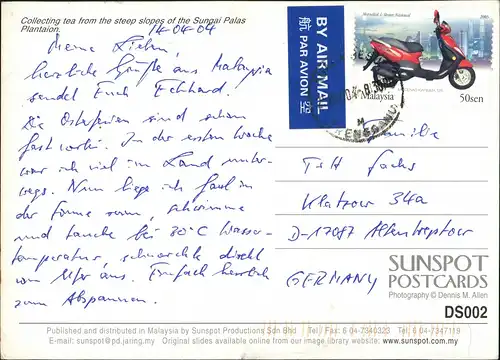 Collecting tea from the steep slopes of the Sungai Palas
Plantaion.
14-04-04
Meine Lieben,
herzliche Grüße aus Malaysia
sendet Euch Eckhard.
Die Osterferien sind schon
fast vorbei. In der ersten Woche
war ich viel im Land unter-
wegs. Nun liege ich faul in
der Sonne rum, schwimme
und tauche bei 30°C Wasser-
temperatur, schnorchle direkt
vom Ufer aus. Einfach herrlich
zum Abspannen.
BY AIR MAIL
航 PAR AVION 空
2003
Malaysia
50sen
Familie
T+H Fuchs
Klatzow 34a
D-17087 Altentreptow
GERMANY
SUNSPOT
POSTCARDS
Photography © Dennis M. Allen
DS002
Published and distributed in Malaysia by Sunspot Productions Sdn Bhd Tel: 6 04-7340323 Fax: 6 04-7347119
E-mail: sunspot@pd.jaring.my Original slides available online from our image library at www.sunspot.com.my